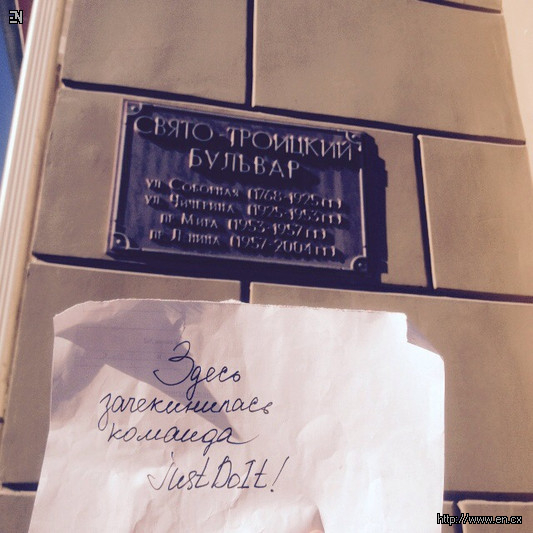 EN
СВЯТО-ТРОИЦКИЙ
БУЛЬВАР
ул Соборная (1768-1925 гг)
ул Чичерина (1925-1953 гг)
пр Мира (1953-1957 гг)
пр Ленина (1957-2004 гг)
Здесь
зачекинилась
команда
justDoIt!
http://www.en.cx